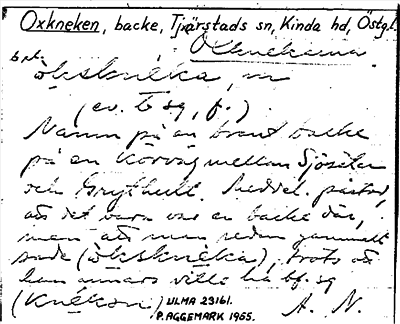 Oxkneken, backe, Tjärstads sn, Kinda hd, Östg.l.
Oxknekarna
best.
òksknêka, m
(ev. t sg, f.)
Namn på en brant backe
på en körväg mellan Sjösäter
och Grythult. Meddel. påstod,
att det bara var en backe där,
men att man redan gammalt
sade (òksknêka), trots att
han annars ville ha bf. sg
(knêken) ULMA 23161.
P. AGGEMARK 1955. A. N.